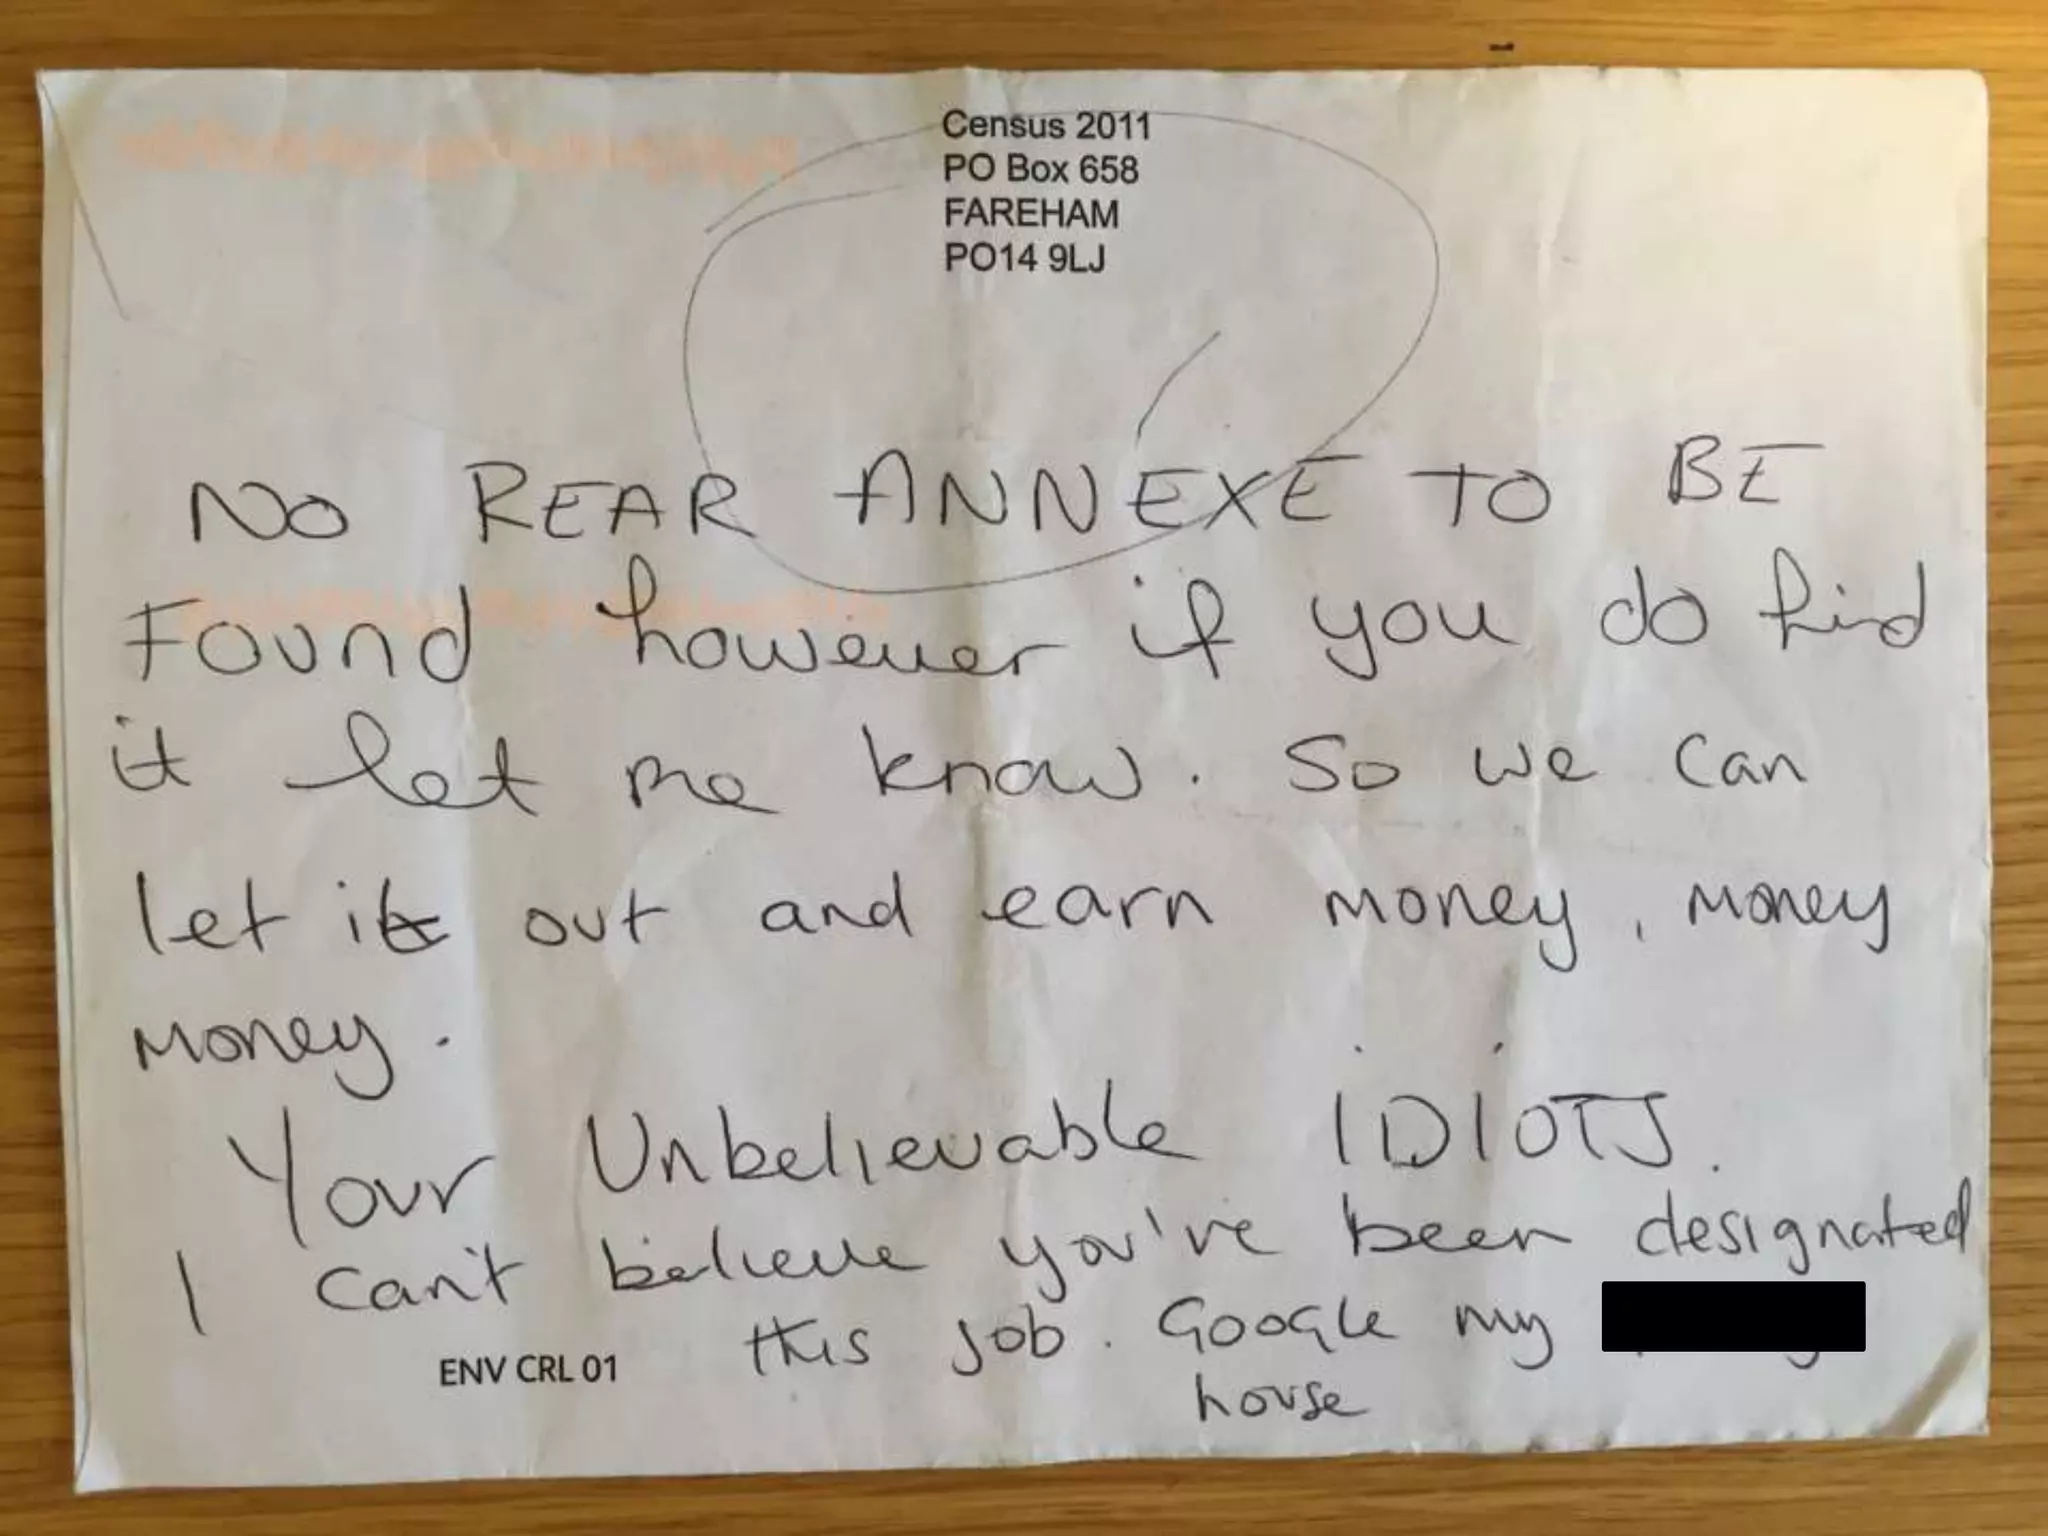 Census 2011
PO Box 658
FAREHAM
PO14 9LJ
NO REAR ANNEXE TO BE
Found however if you do find
it let me know. So we can
let it out and earn money, money
money.
Your Unbelievable IDIOTS.
I can't believe you've been designated
this job. Google my
house
ENV CRL 01